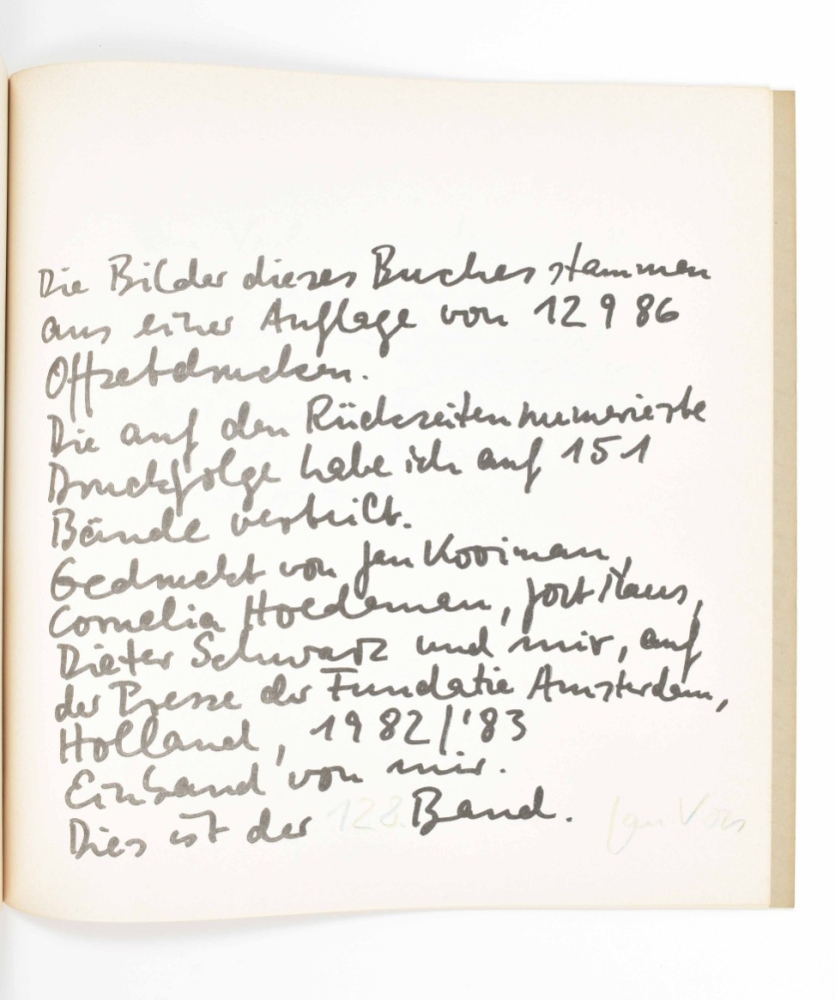 Die Bilder dieses Buches stammen
aus einer Auflage von 12986
Offsetdrucken.
Die auf den Rückseiten numerierte
Druckfolge habe ich auf 151
Bände verteilt.
Gedruckt von Jan Kooiman,
Cornelia Hoedeman,
Dieter Schwarz und mir, auf
der Presse der Fundatie Amsterdam,
Holland, 1982/'83
Einband von mir.
Dies ist der 128. Band. Jan Voss